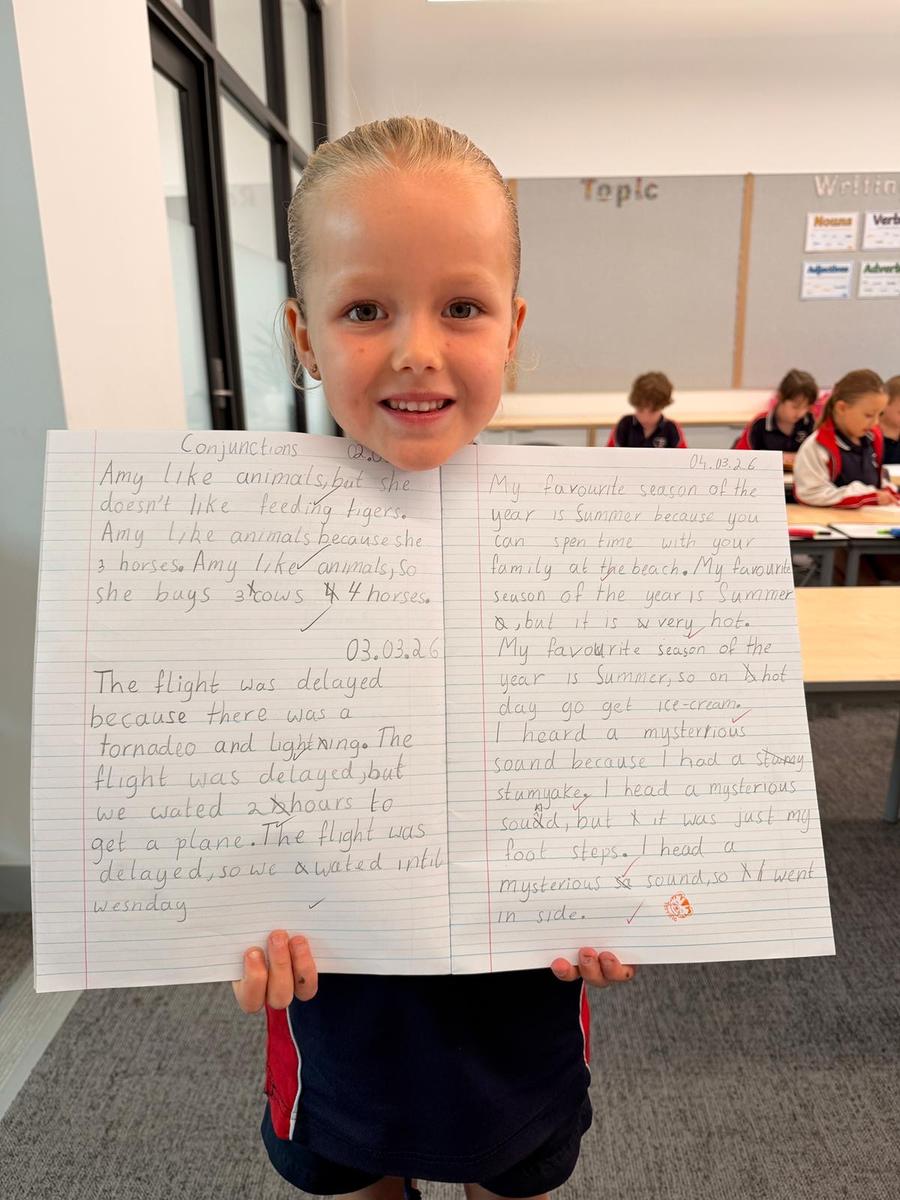 Topic
Writin
Nouns
Verb
Adjectives
Adverb
Conjunctions 02.0
Amy like animals, but she
doesn't like feeding tigers.
Amy like animals because she
3 horses. Amy like animals, so
she buys 3 cows 4 horses.
03.03.26
The flight was delayed
because there was a
tornadeo and lightning. The
flight was delayed, but
we wated 2 hours to
get a plane. The flight was
delayed, so we wated intil
wesnday
04.03.26
My favourite season of the
year is Summer because you
can spen time with your
family at the beach. My favourite
season of the year is Summer
, but it is very hot.
My favourite season of the
year is Summer, so on hot
day go get ice-cream.
I heard a mysterrious
sound because I had a
stumyake. I head a mysterious
sound, but it was just my
foot steps. I head a
mysterious sound, so I went
in side.